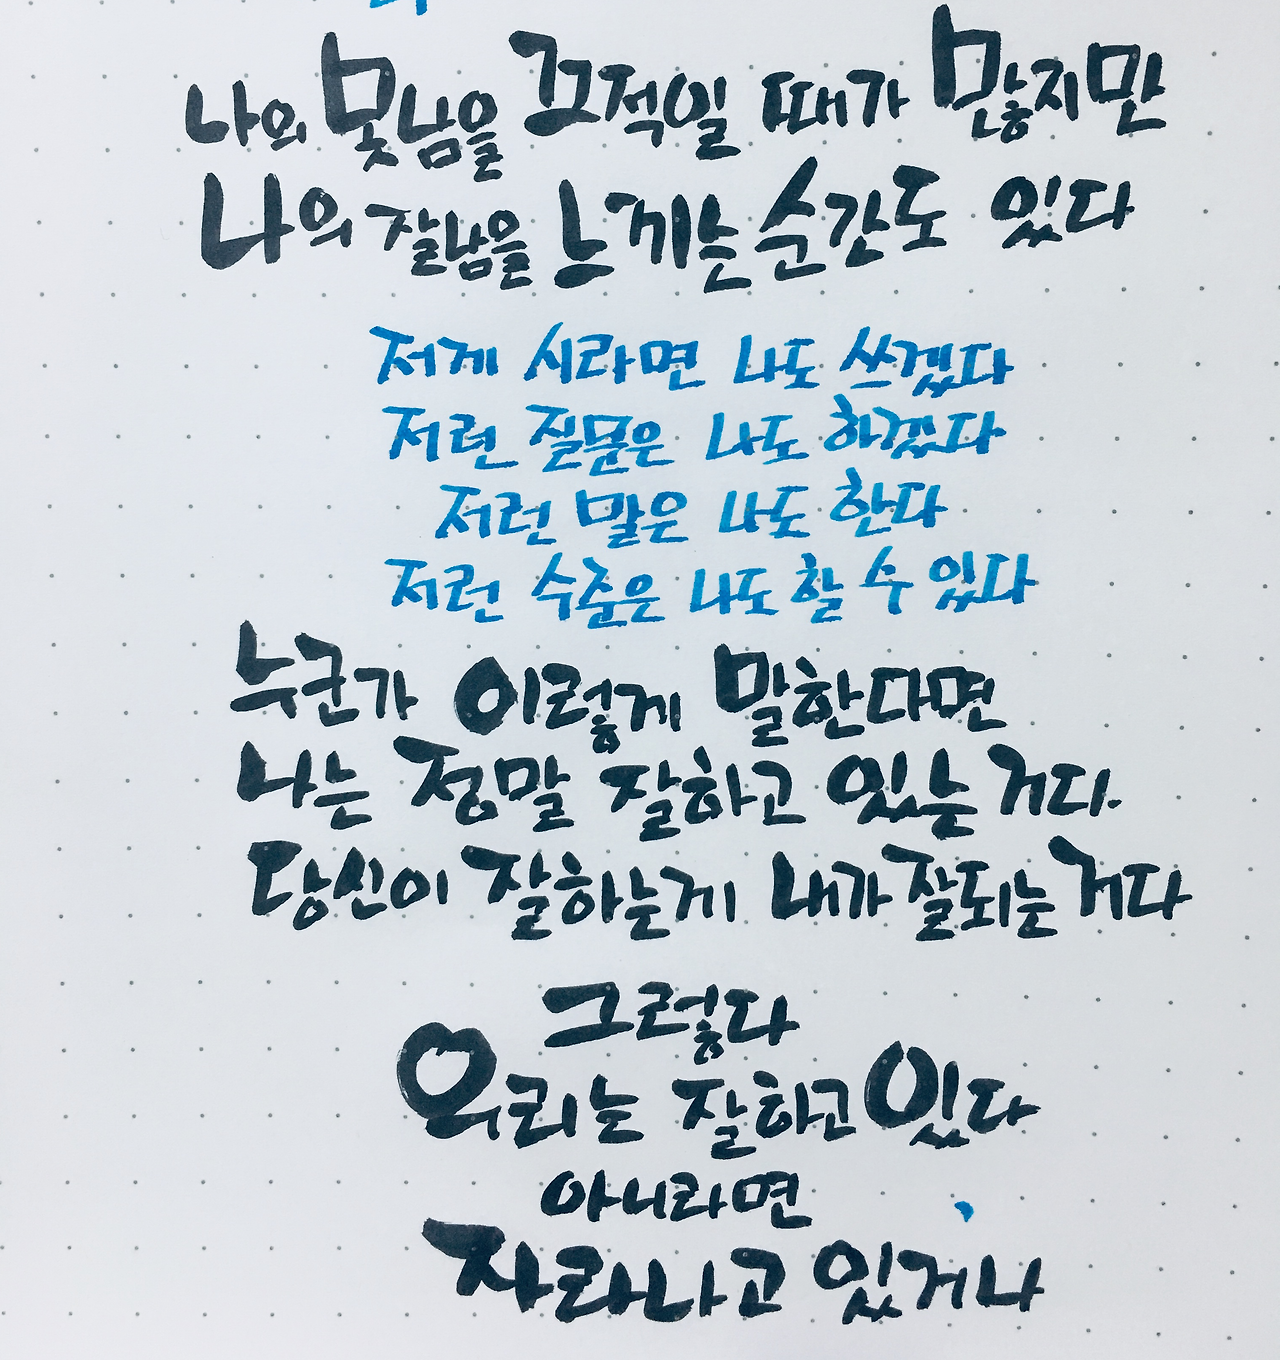 나의 못남을 끄적일 때가 많지만
나의 잘남을 느끼는 순간도 있다
저게 시라면 나도 쓰겠다
저런 질문은 나도 하겠다
저런 말은 나도 한다
저런 수준은 나도 할 수 있다
누군가 이렇게 말한다면
나는 정말 잘하고 있는 거다.
당신이 잘하는게 내가 잘되는거다
그렇다
우리는 잘하고 있다
아니라면
자라나고 있거나